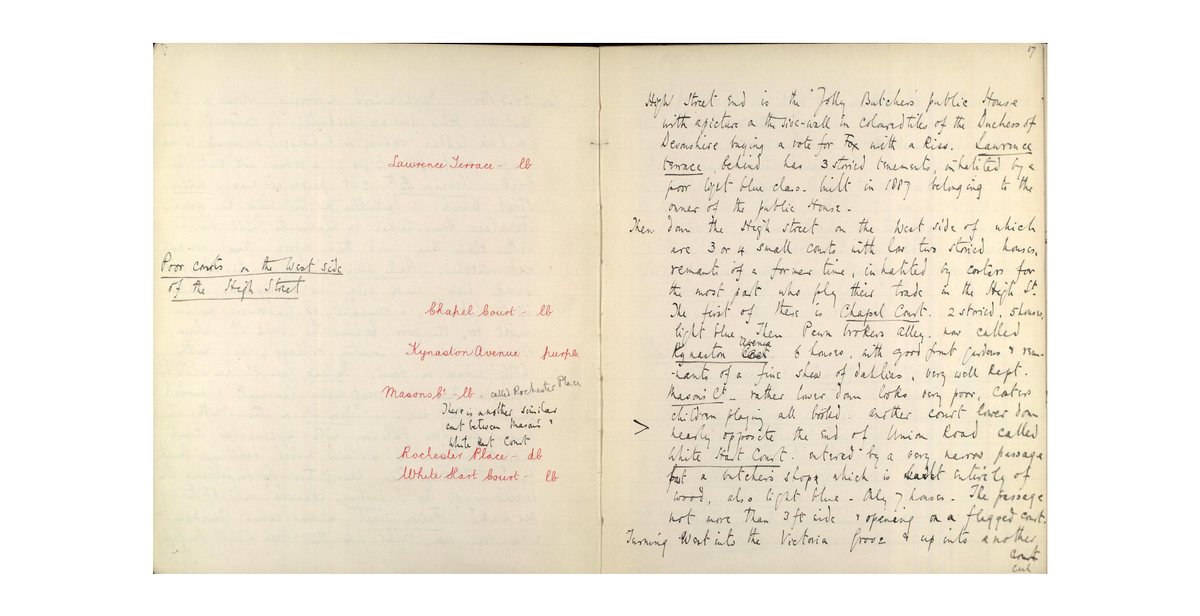 Lawrence Terrace - lb
Poor courts on the West side
of the High Street
Chapel Court - lb
Kynaston Avenue purple
Masons Ct - lb. called Rochester Place
There is another similar
court between Masons &
White Hart Court
Rochester Place - db
White Hart Court - lb
17
High Street End is the "Jolly Butchers" public House
with a picture on the side-wall in coloured tiles of the Duchess of
Devonshire buying a vote for Fox with a Kiss. Lawrence
terrace behind has 3 storied tenements, inhabited by a
poor light blue class. built in 1887 belonging to the
owner of the public House -
Then down the High street on the West side of which
are 3 or 4 small courts with low two storied houses,
remants of a former time, inhabited by costers for
the most part who ply their trade in the High St.
The first of these is Chapel Court. 2 storied. 5 houses,
light blue. Then Pawn brokers alley. now called
Kynaston Avenue. 6 houses, with good front gardens & rem-
-nants of a fine shew of dahlias, very well kept.
Masons Ct - rather lower down looks very poor, costers
children playing all booted. another court lower down
> nearly opposite the end of Union Road called
White Hart Court. entered by a very narrow passage
past a butcher's shop, which is built entirely of
wood, also light blue - Only 7 houses. The passage
not more than 3 ft wide & opening on a flagged court.
Turning West into the Victoria Grove & up into another
court